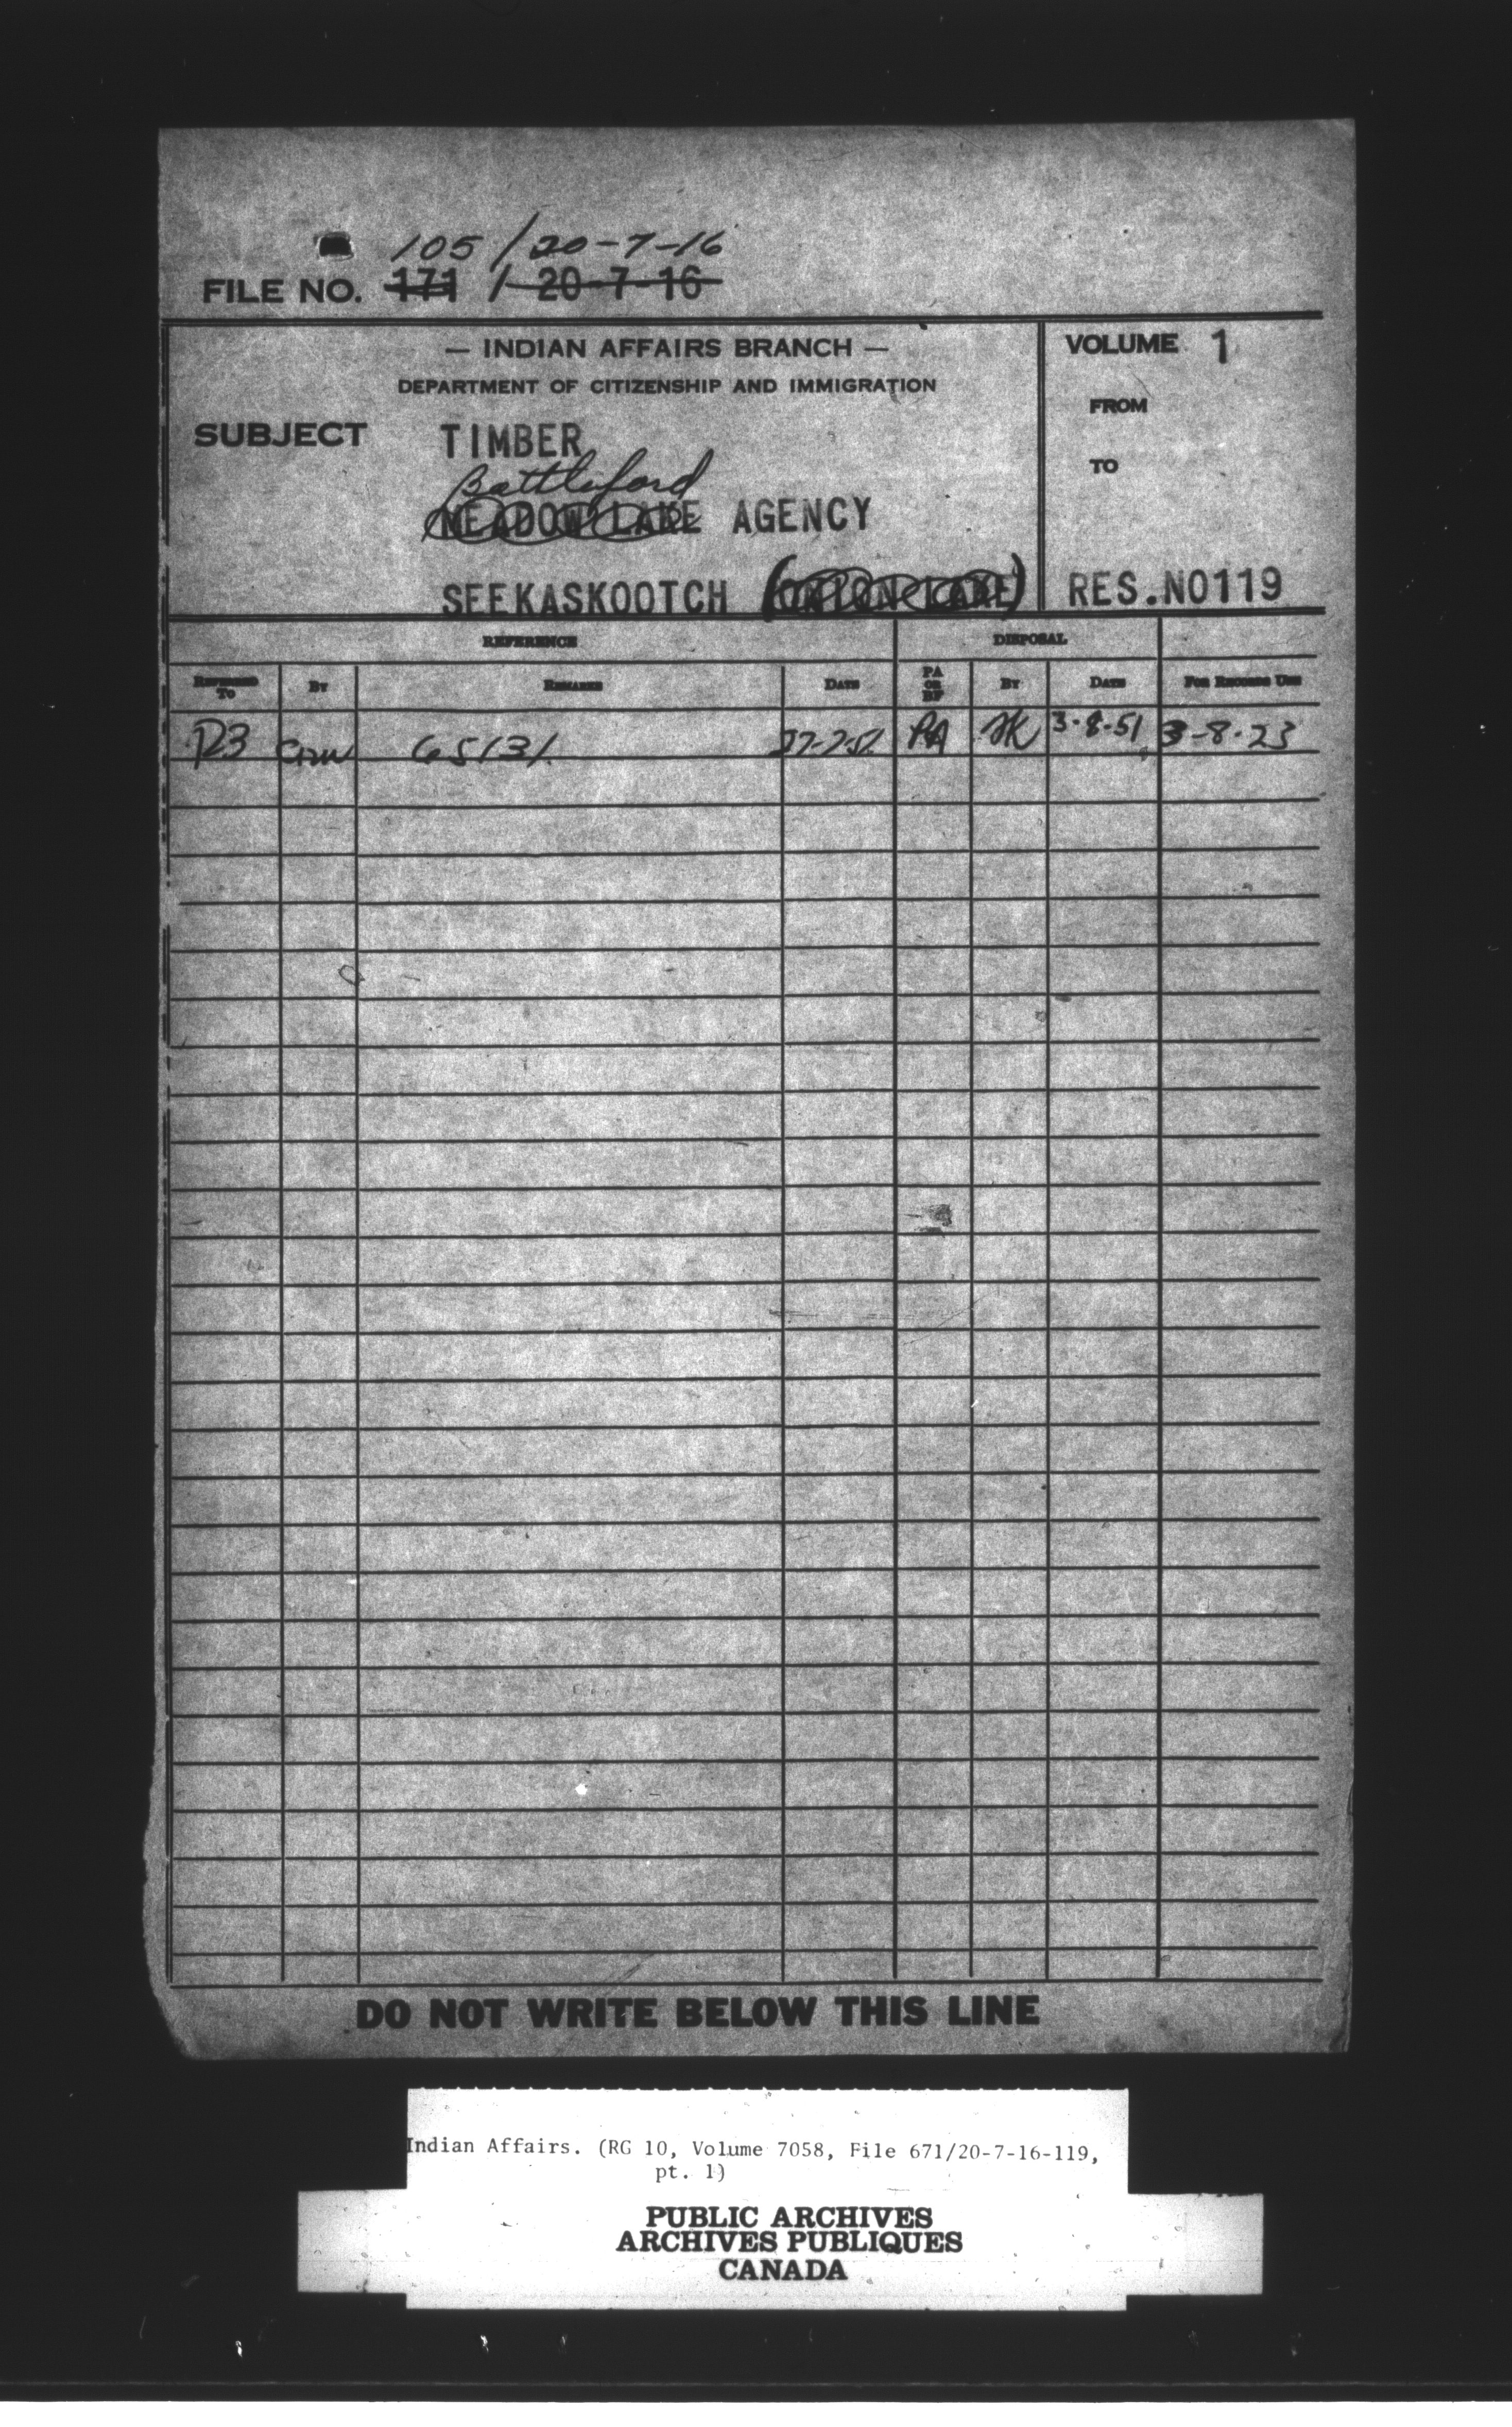 105 / 20-7-16
FILE NO. 171 / 20-7-16
— INDIAN AFFAIRS BRANCH —
DEPARTMENT OF CITIZENSHIP AND IMMIGRATION
VOLUME 1
FROM
TO
SUBJECT TIMBER
Battleford
MEADOW LAKE AGENCY
SEEKASKOOTCH (ONION LAKE) RES.NO119
REFERENCE DISPOSAL
REFERRED TO BY REMARKS DATE PA OR BF BY DATE FOR RECORDS USE
65131 27-7-51 PA 3-8-51 3-8-23
DO NOT WRITE BELOW THIS LINE
Indian Affairs. (RG 10, Volume 7058, File 671/20-7-16-119,
pt. 1)
PUBLIC ARCHIVES
ARCHIVES PUBLIQUES
CANADA